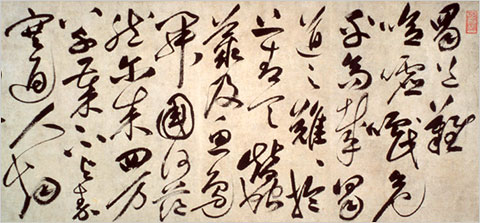 蜀道難
噫嘘嚱危
乎高哉蜀
道之難々於
上青天蠶
叢及魚鳧
開國何茫
然爾來四万
八千歲不与秦
塞通人烟